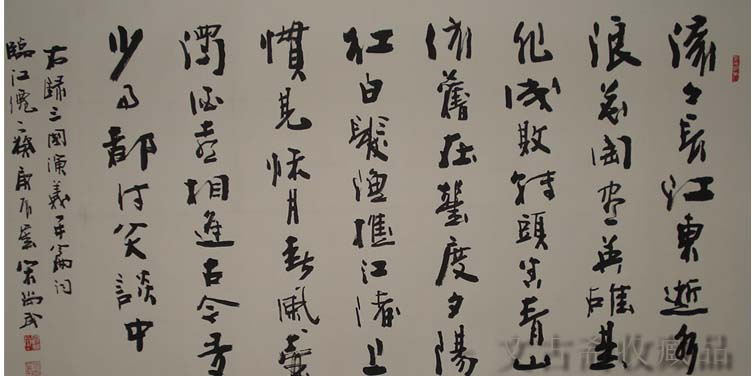 滚々長江東逝水
浪花淘尽英雄是
非成敗轉頭空青山
依舊在幾度夕陽
红白髮渔樵江渚上
慣見秋月春風一壶
濁酒喜相逢古今多
少事都付笑談中
右録三國演義开篇词
臨江僊
文古斋收藏品